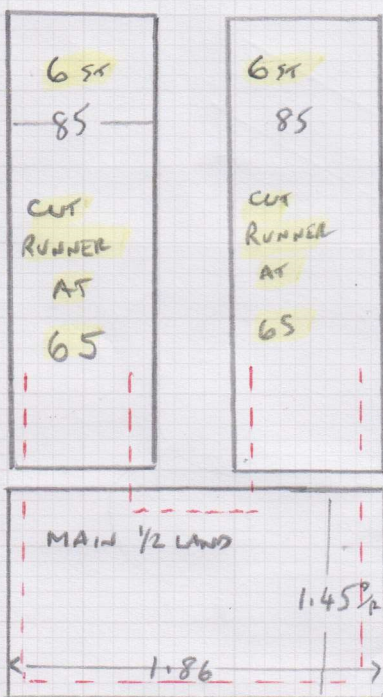 6 ST
85
CUT
RUNNER
AT
65
6 ST
85
CUT
RUNNER
AT
65
MAIN 1/2 LAND
1.45
1.86